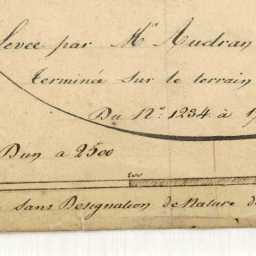 Levée par Mr. Audran
terminée sur le terrain
Du No. 1234 à
D'un a 2500
200
sans Designation de Nature de